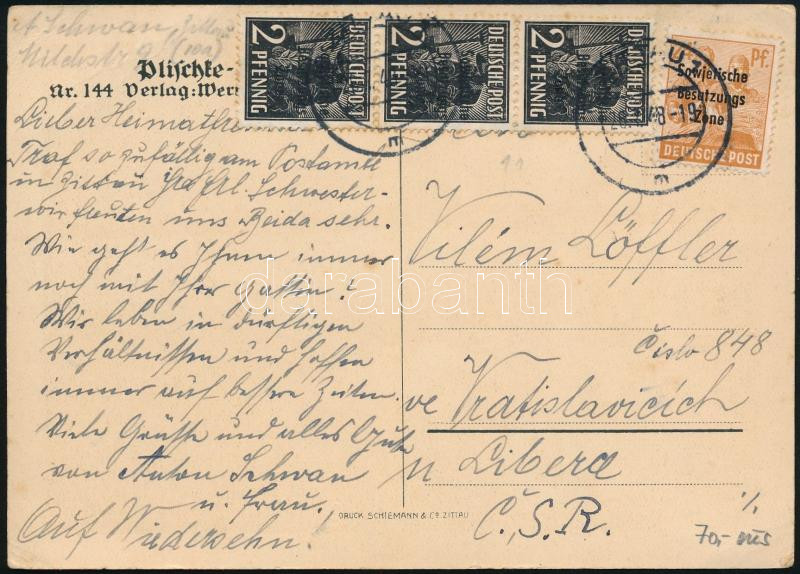 A. Schwan, Zittau
Milchstr 9 (10a)
Plischke-
Nr. 144 Verlag: Wer
Lieber Heimatfreund
Traf so zufällig am Postamte
in Zittau Ihr Frl. Schwester-
wir freuten uns Beide sehr.
Wie geht es Ihnen immer
noch mit Ihrer Gattin?
Wir leben in dürftigen
Verhältnissen und hoffen
immer auf bessere Zeiten.
Viele Grüsse und alles Gute
von Anton Schwan
u. Frau.
Auf Wiedersehn!
2 PFENNIG DEUTSCHE POST
2 PFENNIG DEUTSCHE POST
2 PFENNIG DEUTSCHE POST
Pf.
Sowjetische
Besatzungs
Zone
DEUTSCHE POST
48-19
E
E
Vilém Löffler
Číslo 848
ve Vratislavicích
n Liberce
Č.S.R.
DRUCK SCHIEMANN & Co. ZITTAU
70,-
darabanth